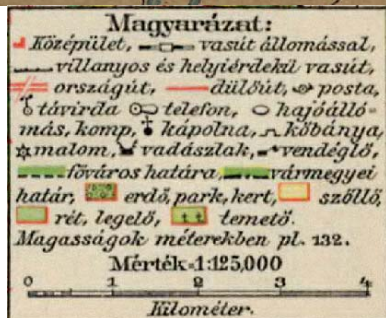 Magyarázat:
Középület, vasút állomással,
villanyos és helyiérdekű vasút,
országút, dülőút, posta,
távirda telefon, hajóálló-
más, komp, kápolna, kőbánya,
malom, vadászlak, vendéglő,
főváros határa, vármegyei
határ, erdő, park, kert, szőlló,
rét, legelő, temető.
Magasságok méterekben pl. 132.
Mérték=1:125,000
0 1 2 3 4
Kilométer.